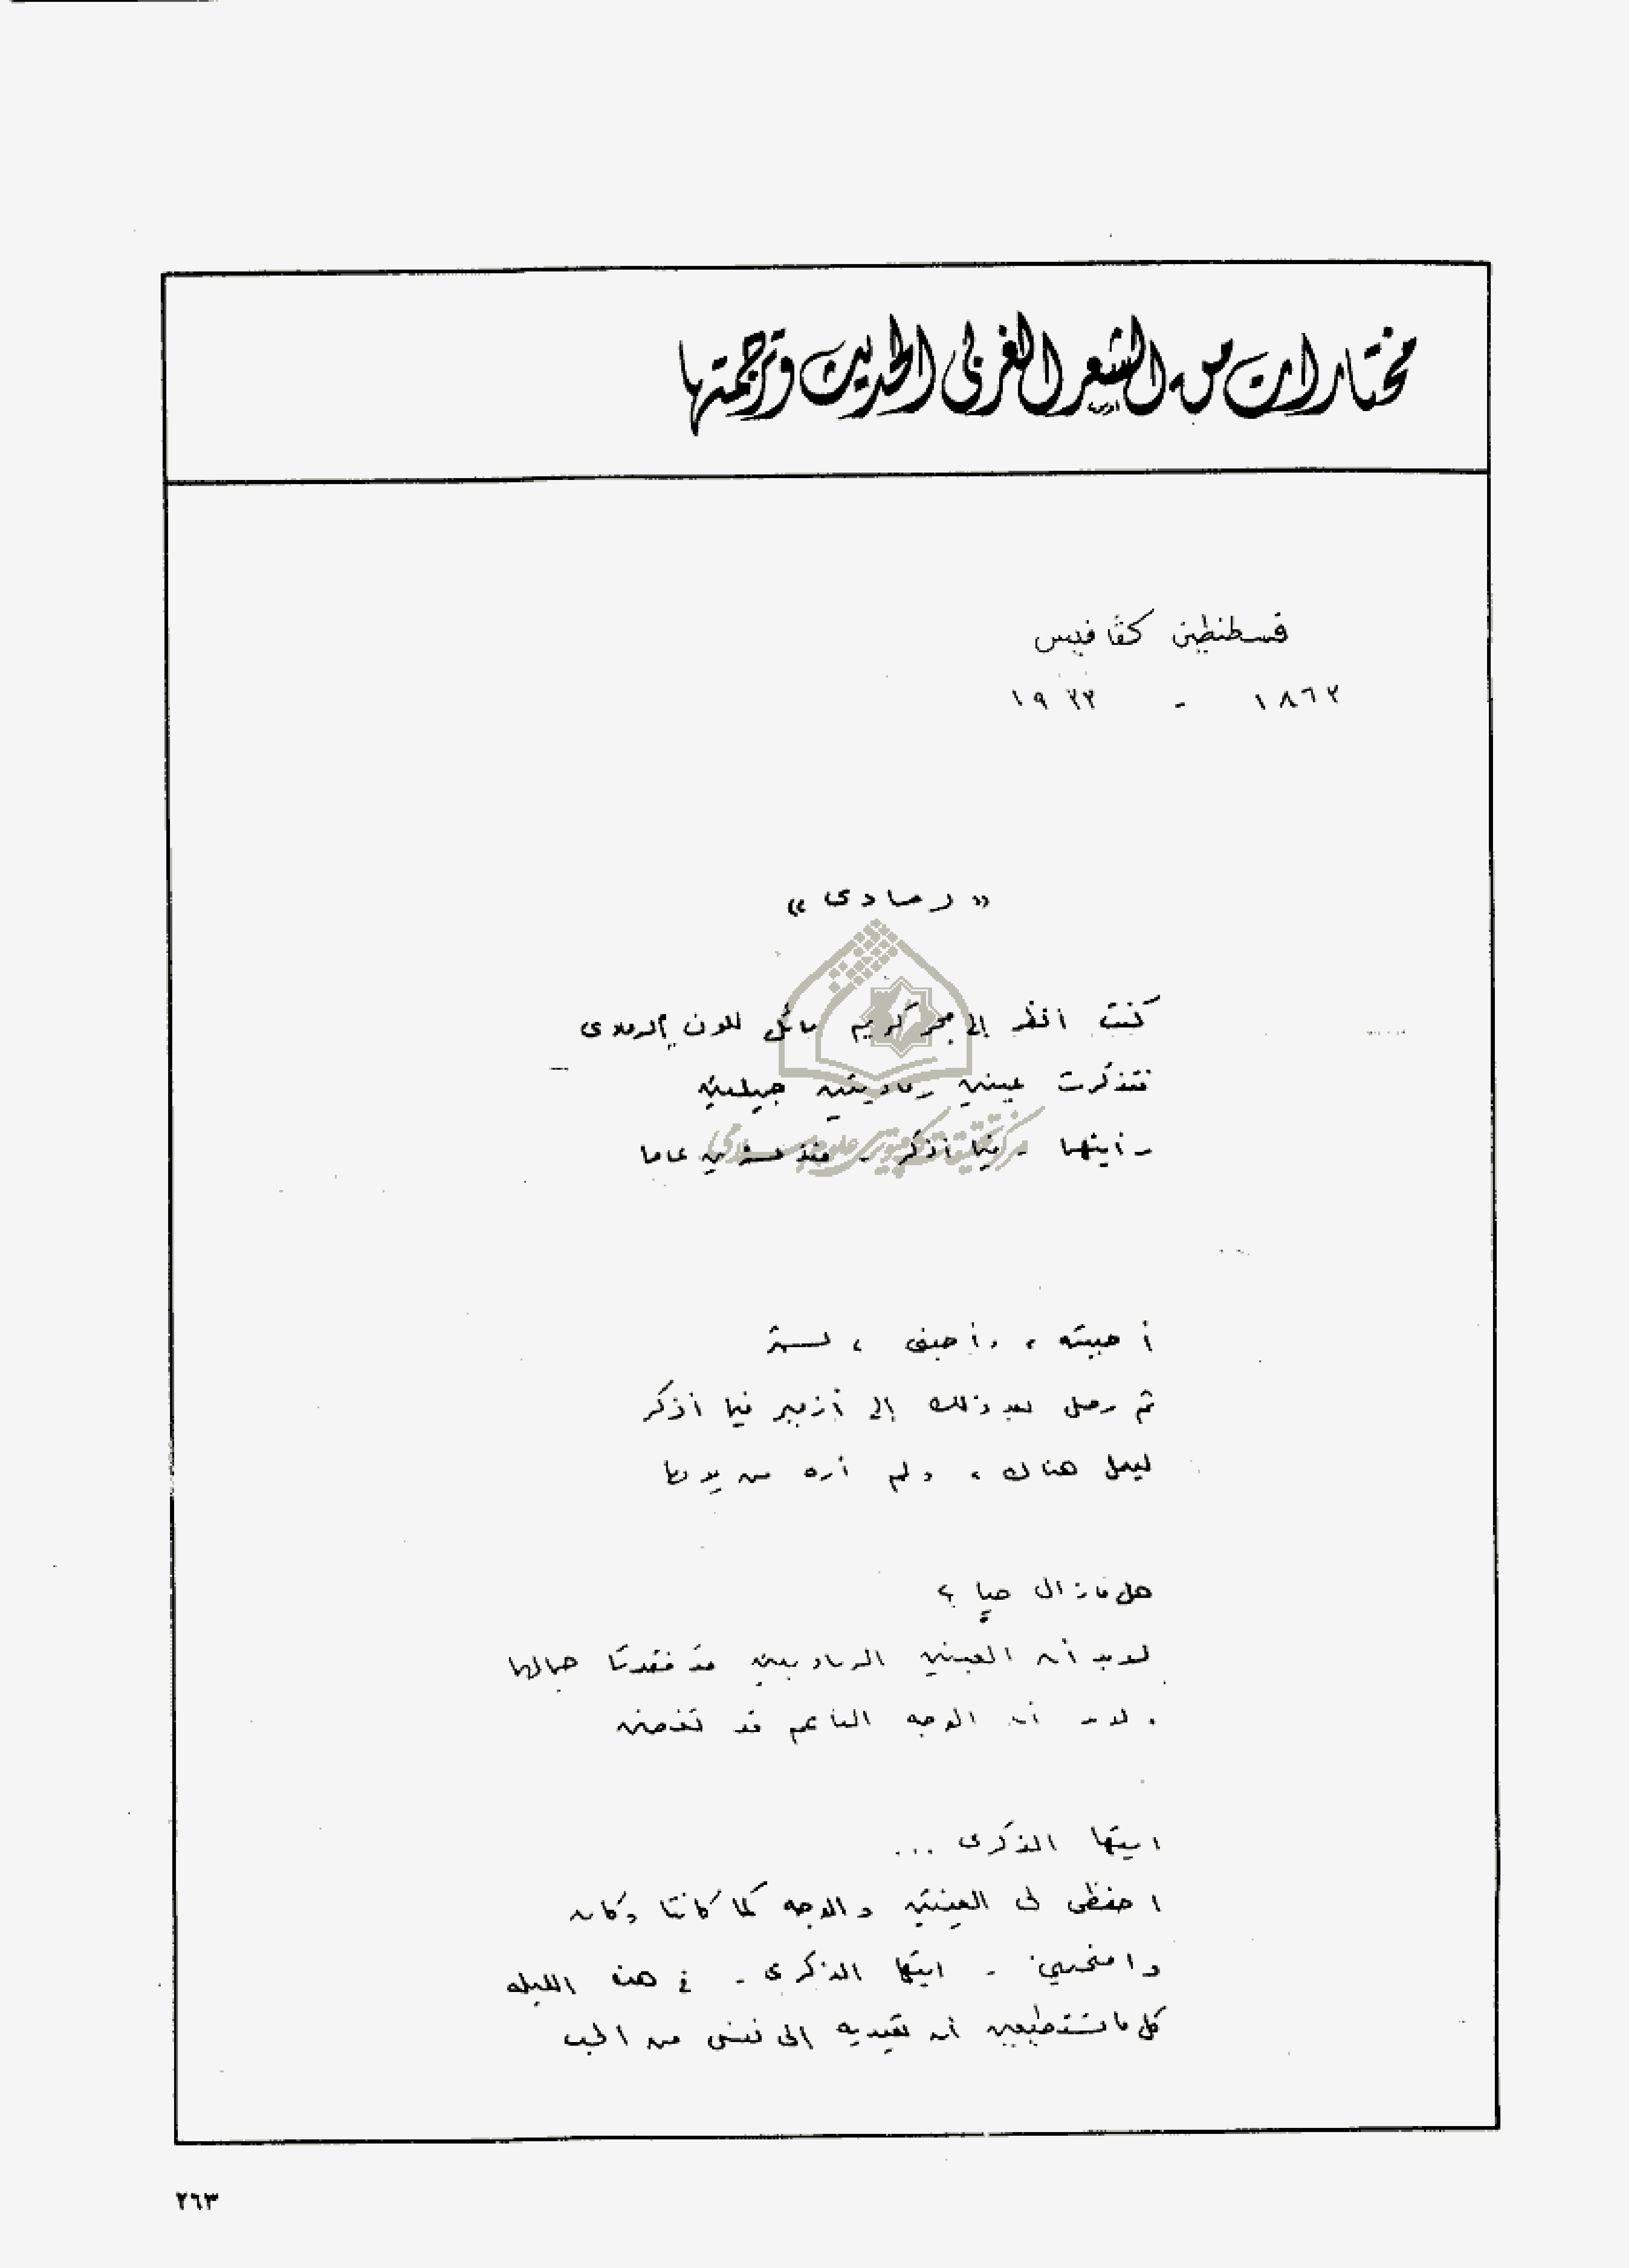 مختارات من الشعر الغربى الحديث وترجمتها
قسطنطين كفافيس
١٨٦٣ - ١٩٣٣
« رمادى »
كنت أنظر إلى حجر كريم مائل للون الرمادى
فتذكرت عينين رماديتين جميلتين
رأيتهما - فيما أذكر - منذ عشرين عاما
أحببته ، وأحبنى ،
ثم رحل بعد ذلك إلى أزمير فيما أذكر
ليعمل هناك ، ولم أره من يومها
هل مازال حيا ؟
لابد أن العينين الرماديتين قد فقدتا جمالهما
ولابد أن الوجه الناعم قد تغضن
ايتها الذكرى ...
احفظى لى العينين والوجه كما كانتا وكان
وامنحينى - ايتها الذكرى - فى هذه الليله
كل ما تستطيعين أن تعيديه إلى نفسى من الحب
مركز تحقيقات كامپيوتری علوم اسلامی
٢٦٣